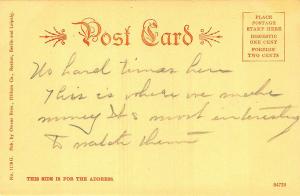 Post Card
PLACE
POSTAGE
STAMP HERE
DOMESTIC
ONE CENT
FOREIGN
TWO CENTS
No hard times here
This is where we make
money It's most interesting
to watch them
THIS SIDE IS FOR THE ADDRESS.
No. 11941. Pub. by Hitchin Co., Boston, Berlin and Leipzig.